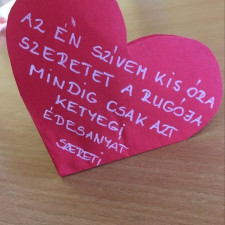 AZ ÉN SZÍVEM KIS ÓRA
SZERETET A RUGÓJA
MINDIG CSAK AZT
KETYEGI
ÉDESANYÁT
SZERETI